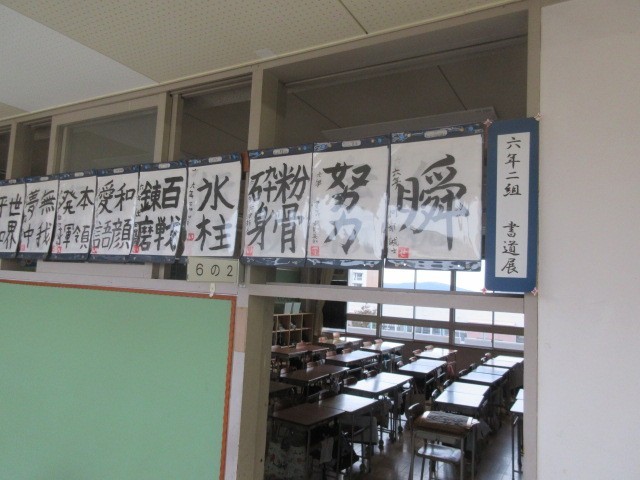 六年二組 書道展
瞬
努力
粉骨
砕身
氷柱
百戦
錬磨
和顔
愛語
本領
発揮
無我
夢中
世界
6の2